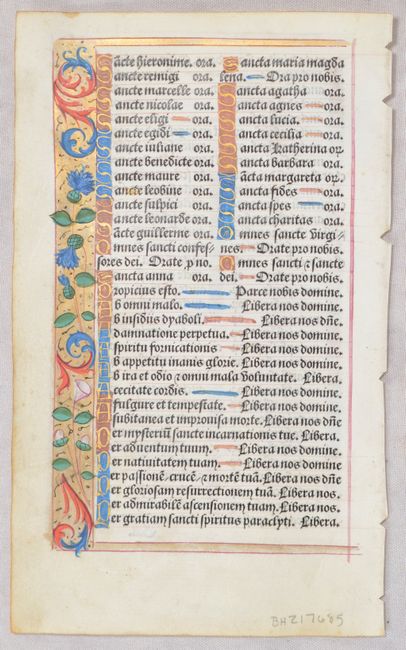 Sancte hieronime. ora.
Sancte remigi ora.
Sancte marcelle ora.
Sancte nicolae ora.
Sancte eligi ora.
Sancte egidi ora.
Sancte iuliane ora.
Sancte benedicte ora.
Sancte maure ora.
Sancte leobine ora.
Sancte sulpici ora.
Sancte leonarde ora.
Sācte guillerme ora.
Omnes sancti confes-
sores dei. Orate p no.
Sancta anna ora.
Sancta maria magda
lena. Ora pro nobis.
Sancta agatha ora.
Sancta agnes ora.
Sancta lucia. ora.
Sancta cecilia ora.
Sancta katherina or
Sancta barbara ora.
Sācta margareta or.
Sancta fides ora.
Sancta spes ora.
Sancta charitas ora.
Omnes sancte virgi-
nes. Orate pro nobis.
Omnes sancti ⁊ sancte
dei. Orate pro nobis.
Propicius esto. Parce nobis domine.
Ab omni malo. Libera nos domine.
Ab insidiis dyaboli. Libera nos dñe
A damnatione perpetua. Libera nos domine.
A spiritu fornicationis Libera nos domine.
Ab appetitu inanis glorie. Libera nos domine.
Ab ira et odio ⁊ omni mala voluntate. Libera.
A cecitate cordis. Libera nos domine.
A fulgure et tempestate. Libera nos domine.
A subitanea et improvisa morte. Libera nos dñe.
Per mysteriū sancte incarnationis tue. Libera nos.
Per adventum tuum. Libera nos domine.
Per nativitatem tuam. Libera nos domine
Per passionē. crucē. ⁊ mortē tuā. Libera nos dñe
Per gloriosam resurrectionem tuā. Libera nos.
Per admirabilē ascensionem tuam. Libera nos.
Per gratiam sancti spiritus paraclyti. Libera.
BHZ17685